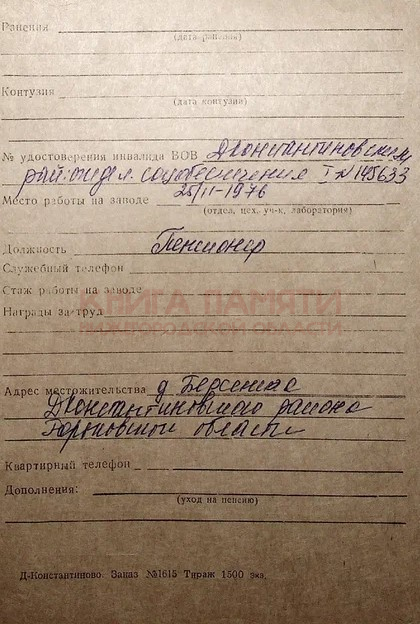 Ранения
(дата ранения)
Контузия
(дата контузии)
№ удостоверения инвалида ВОВ Дконстантиновским
рай.отдел. соцобеспечения I № 145633
25/II-1976
Место работы на заводе
(отдел, цех. уч-к, лаборатория)
Должность Пенсионер
Служебный телефон
Стаж работы на заводе
КНИГА ПАМЯТИ
Награды за труд
НИЖЕГОРОДСКОЙ ОБЛАСТИ
Адрес местожительства д Берсеново
Дконстантиновского района
Горьковской области
Квартирный телефон
Дополнения:
(уход на пенсию)
Д-Константиново. Заказ №1615 Тираж 1500 экз.